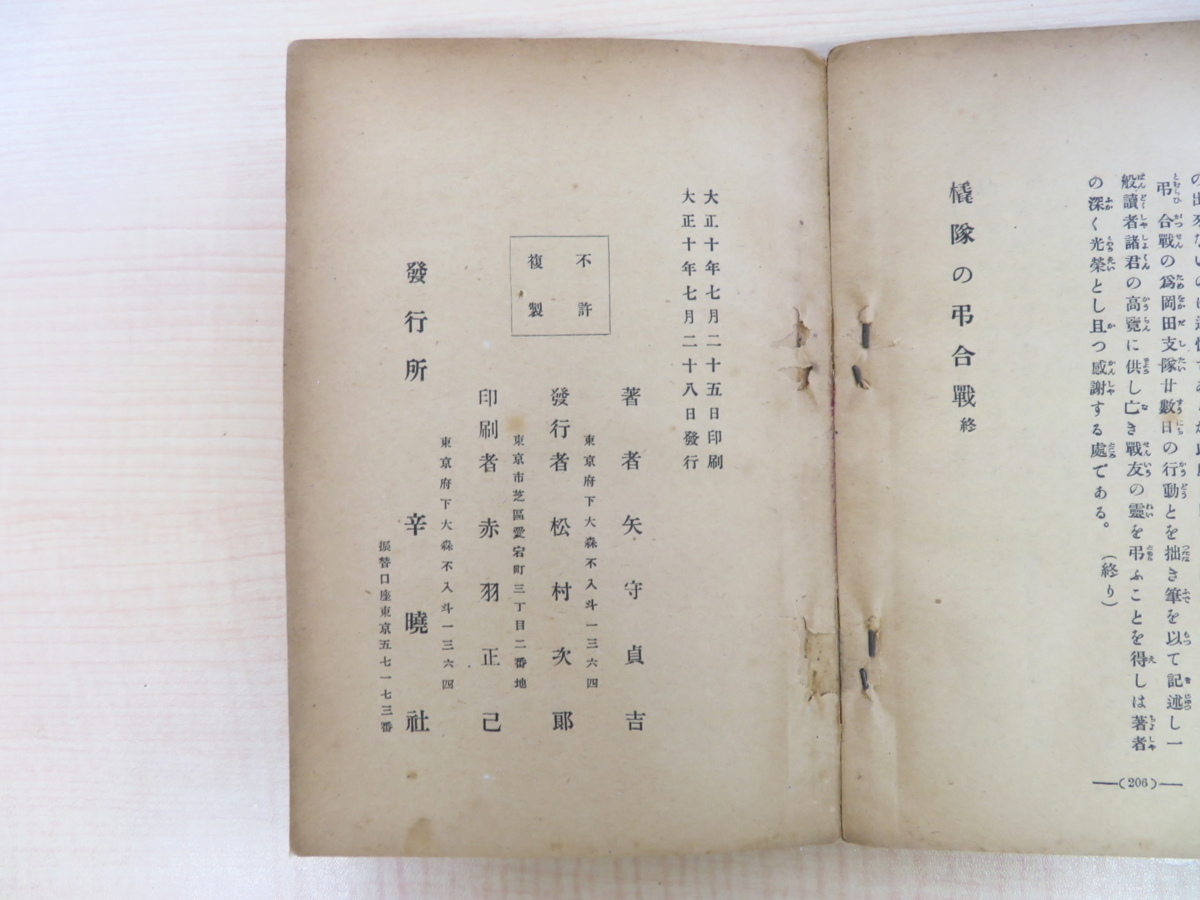 弔合戰の爲岡田支隊廿數日の行動とを拙き筆を以て記述し一
般讀者諸君の高覽に供し亡き戰友の靈を弔ふことを得しは著者
の深く光榮とし且つ感謝する處である。(終り)
橇隊の弔合戰終
(206)
大正十年七月二十五日印刷
大正十年七月二十八日發行
不許
複製
著者 矢守貞吉
東京府下大森不入斗一三六四
發行者 松村次郞
東京市芝區愛宕町三丁目二番地
印刷者 赤羽正己
東京府下大森不入斗一三六四
發行所 辛曉社
振替口座東京五七一七三番